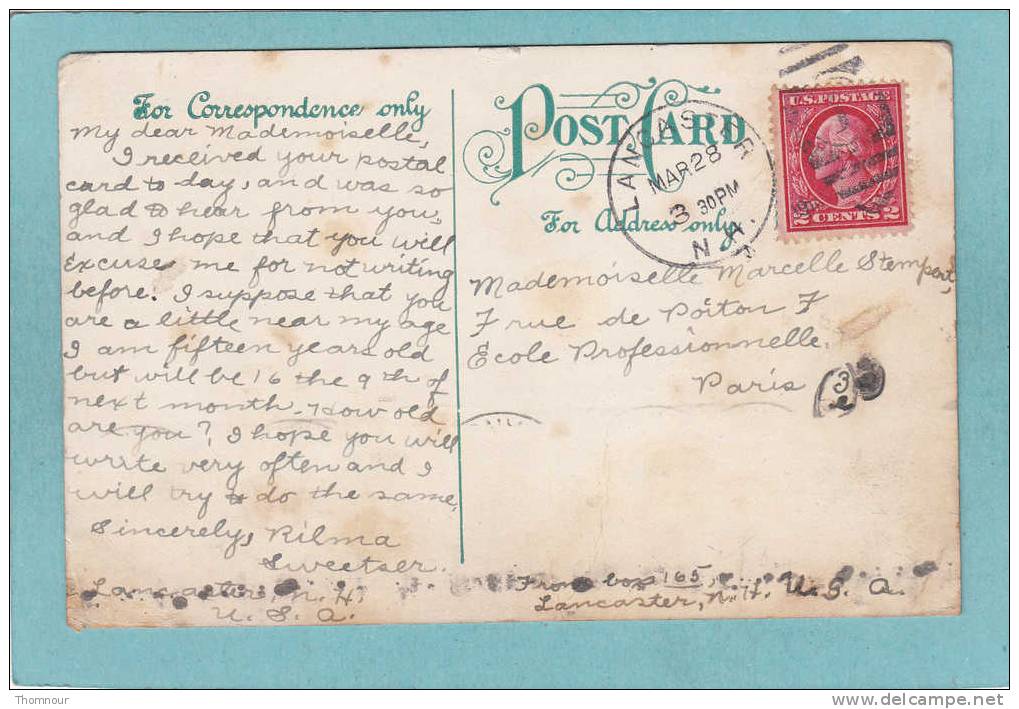 For Correspondence only
My dear Mademoiselle,
I received your postal
card to day, and was so
glad to hear from you,
and I hope that you will
excuse me for not writing
before. I suppose that you
are a little near my age
I am fifteen years old
but will be 16 the 9th of
next month. How old
are you? I hope you will
write very often and I
will try to do the same.
Sincerely, Rilma
Sweetser.
Lancaster, N. H.
U. S. A.
POST CARD
For Address only
LANCASTER
MAR 28
3 30 PM
N.H.
U.S. POSTAGE
2 CENTS 2
Mademoiselle Marcelle
7 rue de Poitou 7
Ecole Professionnelle.
Paris
3
From box 165,
Lancaster, N. H. U. S. A.
Thomnour
www.delcampe.net